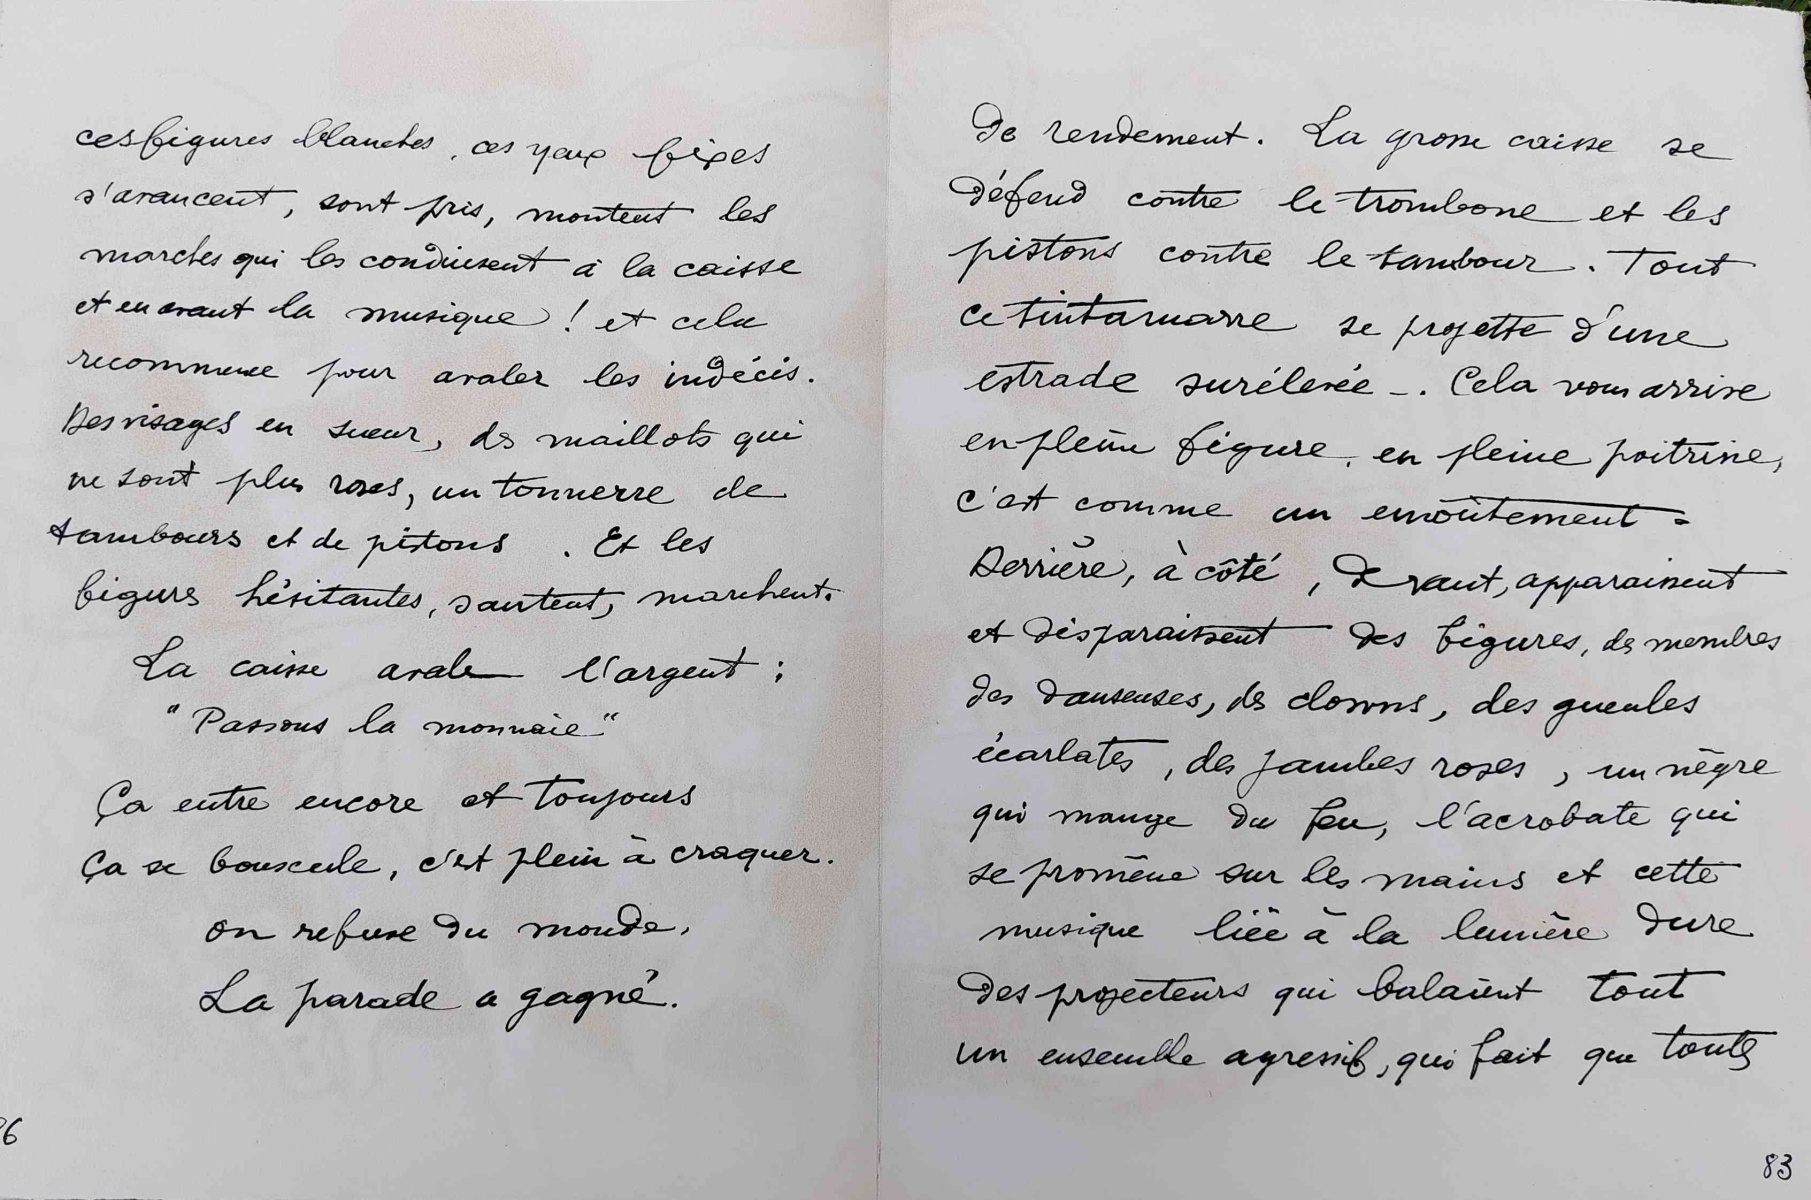 ces figures blanches, ces yeux fixes
s'avancent, sont pris, montent les
marches qui les conduisent à la caisse
et en avant la musique ! et cela
recommence pour avaler les indécis.
Des visages en sueur, des maillots qui
ne sont plus roses, un tonnerre de
tambours et de pistons . Et les
figures hésitantes, sautent, marchent.
La caisse avale l'argent :
"Passons la monnaie"
Ça entre encore et toujours
Ça se bouscule, c'est plein à craquer.
on refuse du monde.
La parade a gagné.
86
de rendement. La grosse caisse se
défend contre le trombone et les
pistons contre le tambour. Tout
ce tintamarre se projette d'une
estrade surélevée -. Cela vous arrive
en pleine figure, en pleine poitrine,
c'est comme un envoûtement =
Derrière, à côté, Devant, apparaissent
et disparaissent des figures, des membres
des danseuses, des clowns, des gueules
écarlates, des jambes roses, un nègre
qui mange du feu, l'acrobate qui
se promène sur les mains et cette
musique liée à la lumière dure
des projecteurs qui balaient tout
un ensemble agressif, qui fait que toutes
83